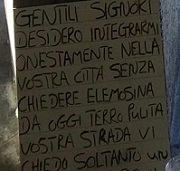 GENTILI SIGNORI
DESIDERO INTEGRARMI
ONESTAMENTE NELLA
VOSTRA CITTÀ SENZA
CHIEDERE ELEMOSINA
DA OGGI TERRO PULITA
VOSTRA STRADA VI
CHIEDO SOLTANTO UN